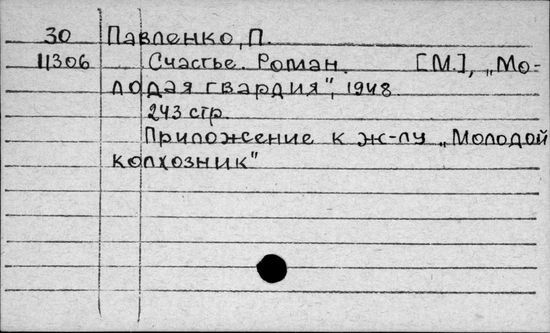 30 Павленко, П.
11306 Счастье. Роман. [М.], „Мо-
лодая гвардия", 1948.
243 стр.
Приложение к ж-лу „Молодой
колхозник"